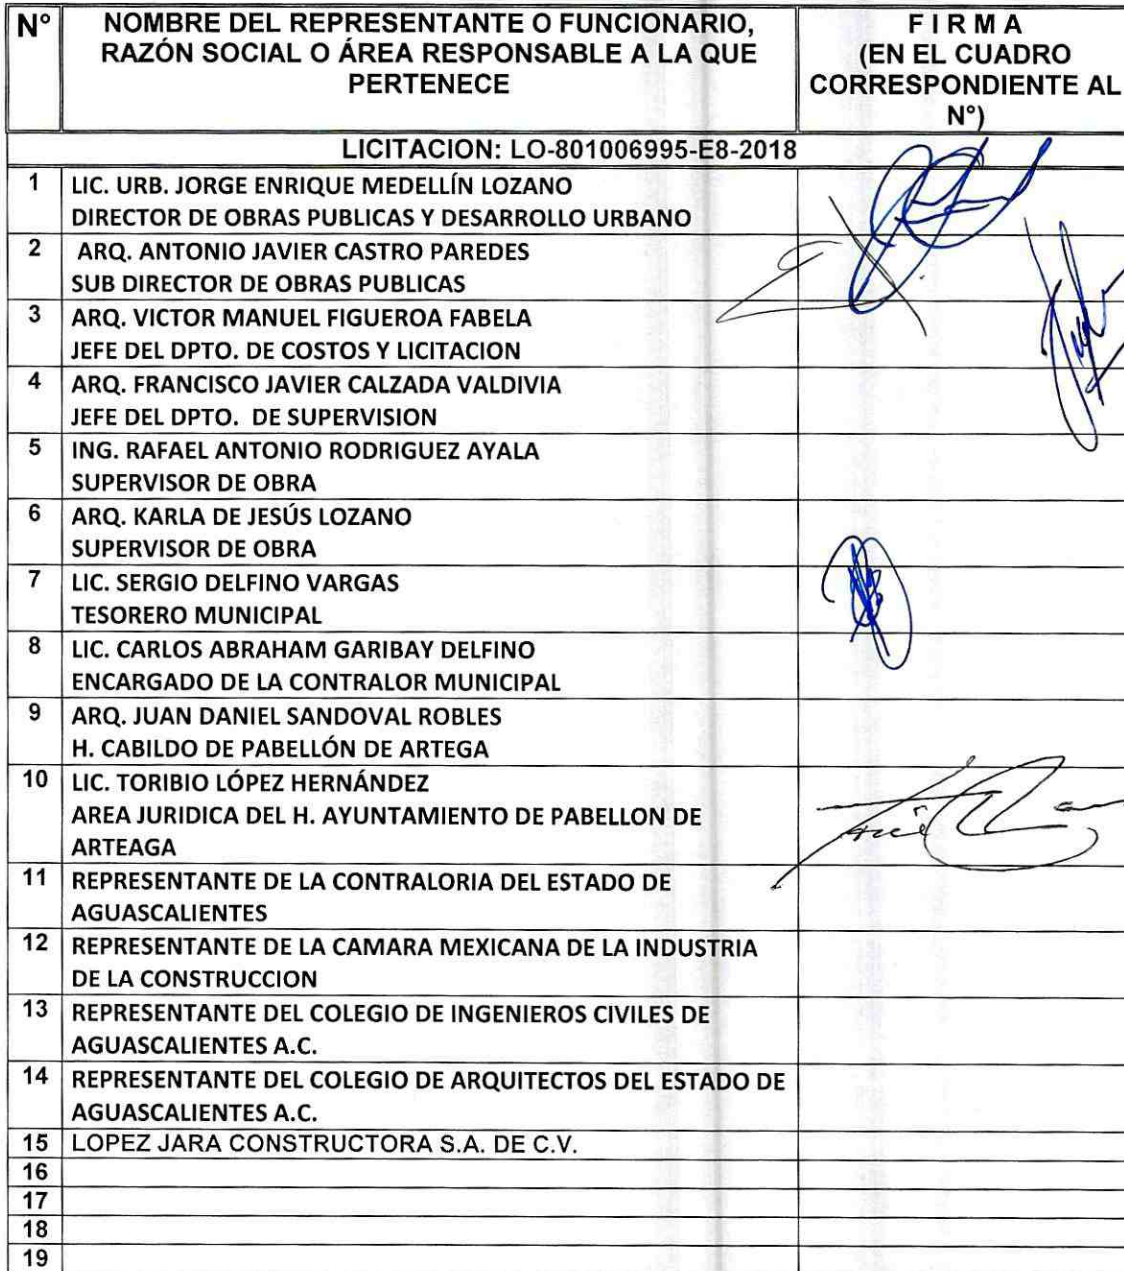 N°
NOMBRE DEL REPRESENTANTE O FUNCIONARIO,
RAZÓN SOCIAL O ÁREA RESPONSABLE A LA QUE
PERTENECE
F I R M A
(EN EL CUADRO
CORRESPONDIENTE AL
N°)
LICITACION: LO-801006995-E8-2018
1 LIC. URB. JORGE ENRIQUE MEDELLÍN LOZANO
DIRECTOR DE OBRAS PUBLICAS Y DESARROLLO URBANO
2 ARQ. ANTONIO JAVIER CASTRO PAREDES
SUB DIRECTOR DE OBRAS PUBLICAS
3 ARQ. VICTOR MANUEL FIGUEROA FABELA
JEFE DEL DPTO. DE COSTOS Y LICITACION
4 ARQ. FRANCISCO JAVIER CALZADA VALDIVIA
JEFE DEL DPTO. DE SUPERVISION
5 ING. RAFAEL ANTONIO RODRIGUEZ AYALA
SUPERVISOR DE OBRA
6 ARQ. KARLA DE JESÚS LOZANO
SUPERVISOR DE OBRA
7 LIC. SERGIO DELFINO VARGAS
TESORERO MUNICIPAL
8 LIC. CARLOS ABRAHAM GARIBAY DELFINO
ENCARGADO DE LA CONTRALOR MUNICIPAL
9 ARQ. JUAN DANIEL SANDOVAL ROBLES
H. CABILDO DE PABELLÓN DE ARTEGA
10 LIC. TORIBIO LÓPEZ HERNÁNDEZ
AREA JURIDICA DEL H. AYUNTAMIENTO DE PABELLON DE
ARTEAGA
11 REPRESENTANTE DE LA CONTRALORIA DEL ESTADO DE
AGUASCALIENTES
12 REPRESENTANTE DE LA CAMARA MEXICANA DE LA INDUSTRIA
DE LA CONSTRUCCION
13 REPRESENTANTE DEL COLEGIO DE INGENIEROS CIVILES DE
AGUASCALIENTES A.C.
14 REPRESENTANTE DEL COLEGIO DE ARQUITECTOS DEL ESTADO DE
AGUASCALIENTES A.C.
15 LOPEZ JARA CONSTRUCTORA S.A. DE C.V.
16
17
18
19